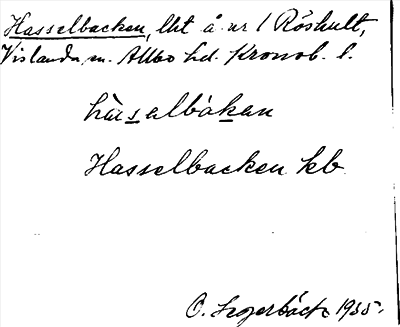 Hasselbacken, lht å nr 1 Röshult,
Vislanda sn. Allbo hd. Kronob. l.
hàsalbàkan
Hasselbacken kb
O. 1935.